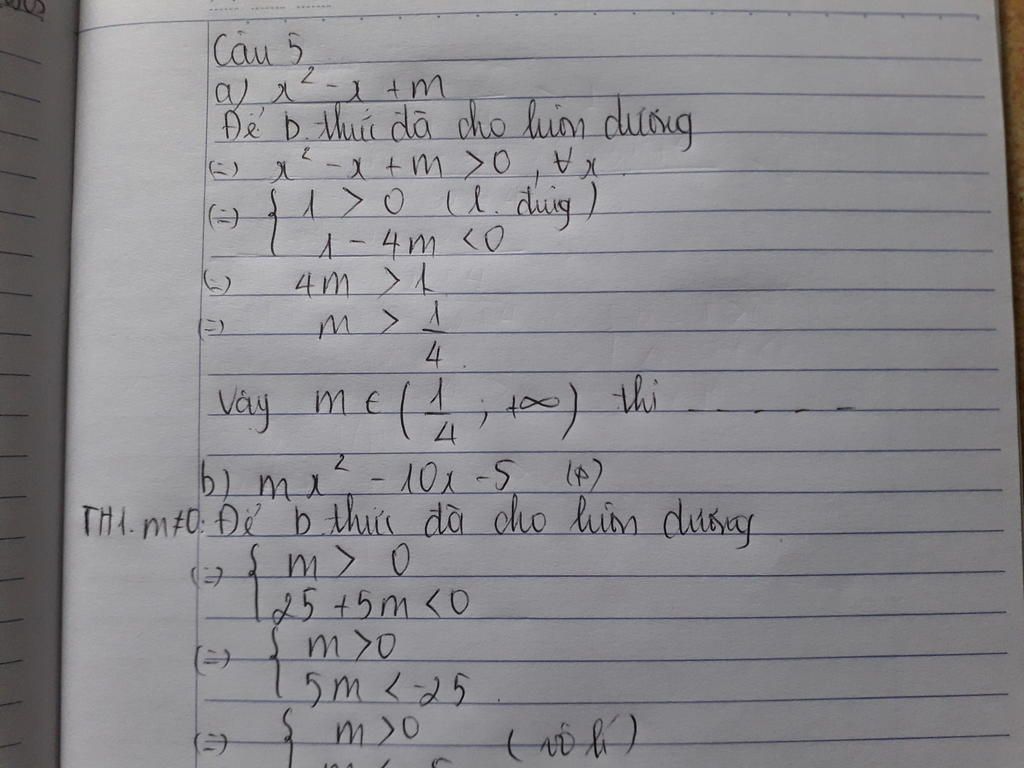 Câu 5
a) x² - x + m
Để b.thức đã cho luôn dương
(=) x² - x + m > 0, ∀x
(=) { 1 > 0 (l. đúng)
1 - 4m < 0
(=) 4m > 1
(=) m > 1/4
Vậy m ∈ (1/4; +∞) thì - - - - -
b) mx² - 10x - 5 (*)
TH1. m≠0: Để b.thức đã cho luôn dương
(=) { m > 0
25 + 5m < 0
(=) { m > 0
5m < -25
(=) { m > 0 (vô lí)